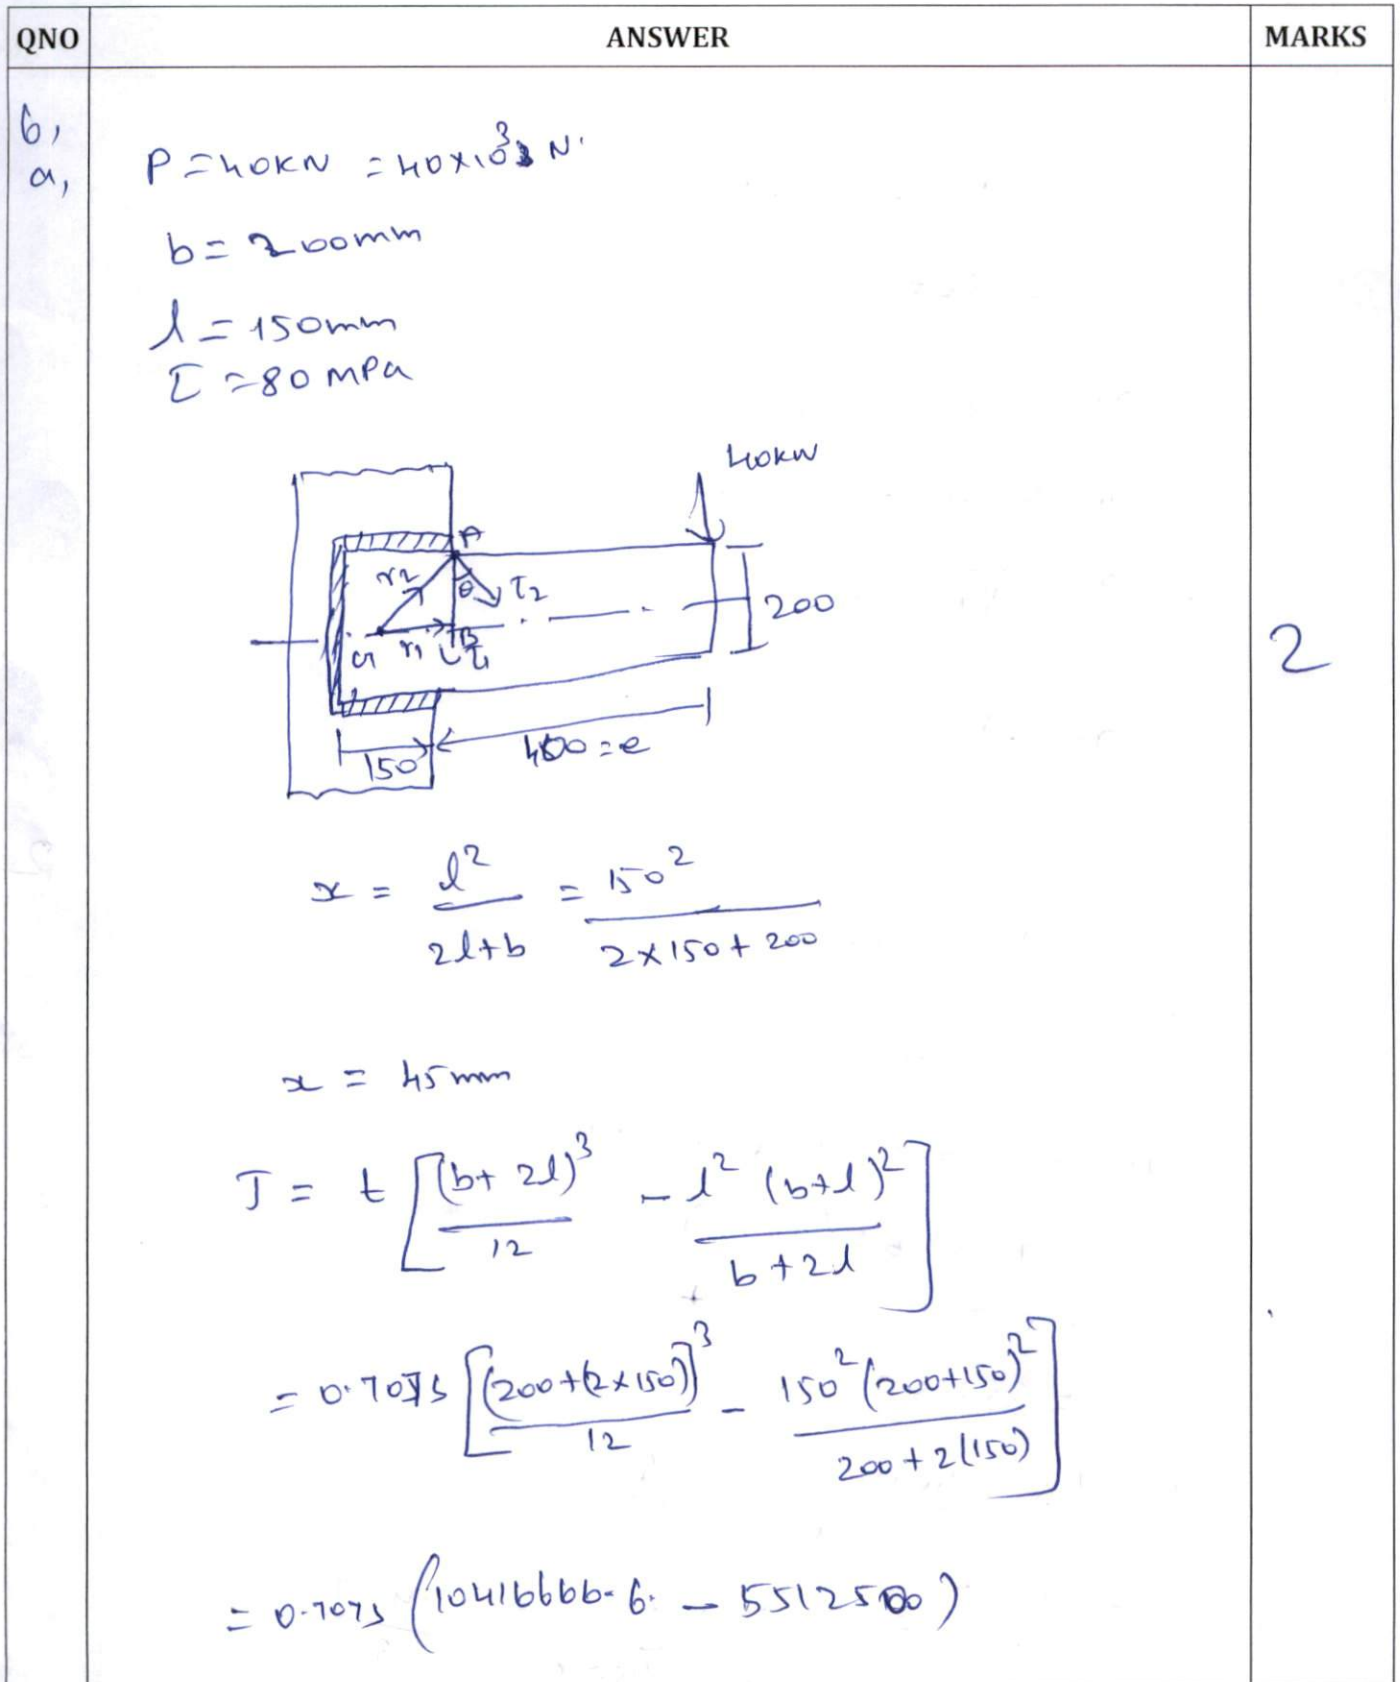 QNO ANSWER MARKS
6,
a,
P = 40KN = 40×10³ N.
b = 200mm
l = 150mm
τ = 80 MPa
40KN
A
r2 θ τ2
200
G r1 B τ1
2
150 400 = e
x = l² / 2l+b = 150² / 2×150+200
x = 45mm
J = t [ (b+2l)³ / 12 - l² (b+l)² / b+2l ]
= 0.707s [ (200+(2×150))³ / 12 - 150² (200+150)² / 200+2(150) ]
= 0.707s (10416666.6. - 5512500)